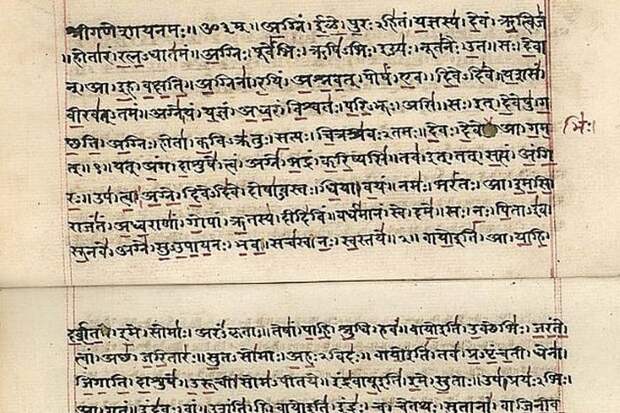 श्रीगणेशायनमः॥ॐ३म्॥ अग्निं। ईळे। पुरःऽहितं। यज्ञस्य। देवं। ऋत्विजं
॥होतारं। रत्नऽधातमं॥ अग्निः। पूर्वेभिः। ऋषिऽभिः। ईड्यः। नूतनैः। उत॥ सः। देवा
न्। आ। इह। वक्षति॥ अग्निना। रयिं। अश्नवत्। पोषं। एव। दिवेऽदिवे॥ यशसं।
वीरवत्ऽतमं॥ अग्ने। यं। यज्ञं। अध्वरं। विश्वतः। परिऽभूः। असि॥ सः। इत्। देवेषु। ग
च्छति॥ अग्निः। होता। कविऽक्रतुः। सत्यः। चित्रश्रवःऽतमः॥ देवः। देवे। आ। गम
भिः।
त्॥१॥ यत्। अंग। दाशुषे। त्वं। अग्ने। भद्रं। करिष्यसि॥ तव। इत्। तत्। सत्यं। अंगि
रः॥ उप। त्वा। अग्ने। दिवेऽदिवे। दोषाऽवस्तः। धिया। वयं॥ नमः। भरंतः। आ। इमसि॥
राजंतं। अध्वराणां। गोपां। ऋतस्य। दीदिविं॥ वर्धमानं। स्वे। दमे॥ सः। नः। पिताऽइव।
सूनवे। अग्ने। सुऽउपायनः। भव॥ सचस्व। नः। स्वस्तये॥२॥ वायो इति। आ। याहि।
दर्शत। इमे। सोमाः। अरंऽकृताः॥ तेषां। पाहि। श्रुधि। हवं॥ वायो इति। उक्थेभिः। जरंते।
त्वां। अच्छ। जरितारः॥ सुतऽसोमाः। अहःऽविदः॥ वायो इति। तव। प्रऽपृंचती। धेना।
जिगाति। दाशुषे॥ उरूची। सोमऽपीतये॥ इंद्रवायू इति। इमे। सुताः। उप। प्रयःऽभिः।
आ। गतं॥ इंदवः। वां। उशंति। हि॥ वायो इति। इंद्रः। च। चेतथः। सुतानां। वाजिनीव